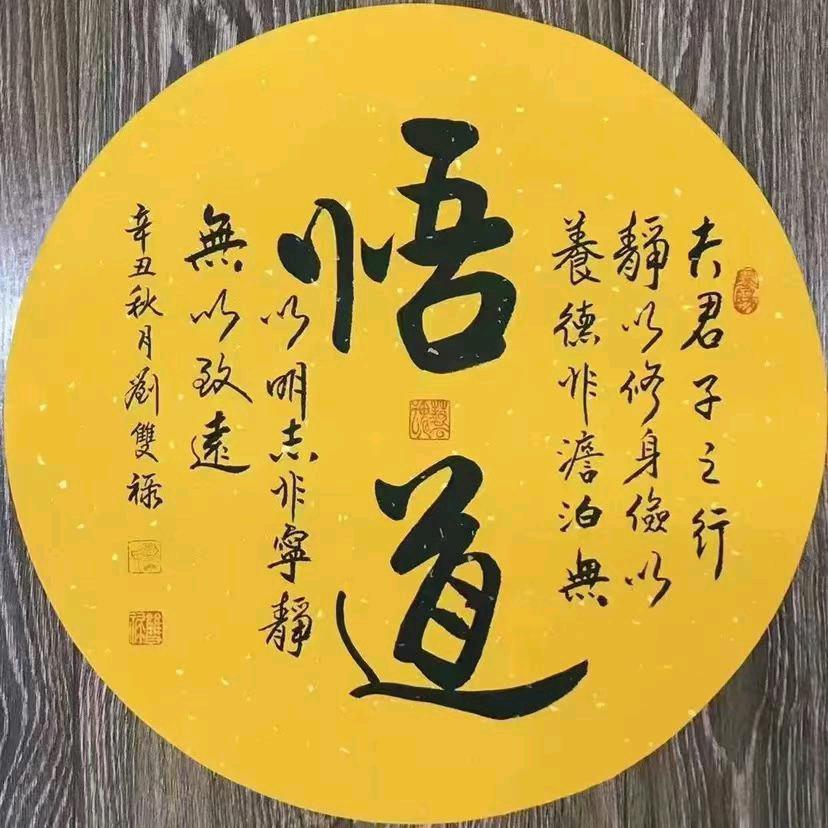 夫君子之行
靜以修身儉以
養德非澹泊無
悟道
以明志非寧靜
無以致遠
辛丑秋月劉雙祿